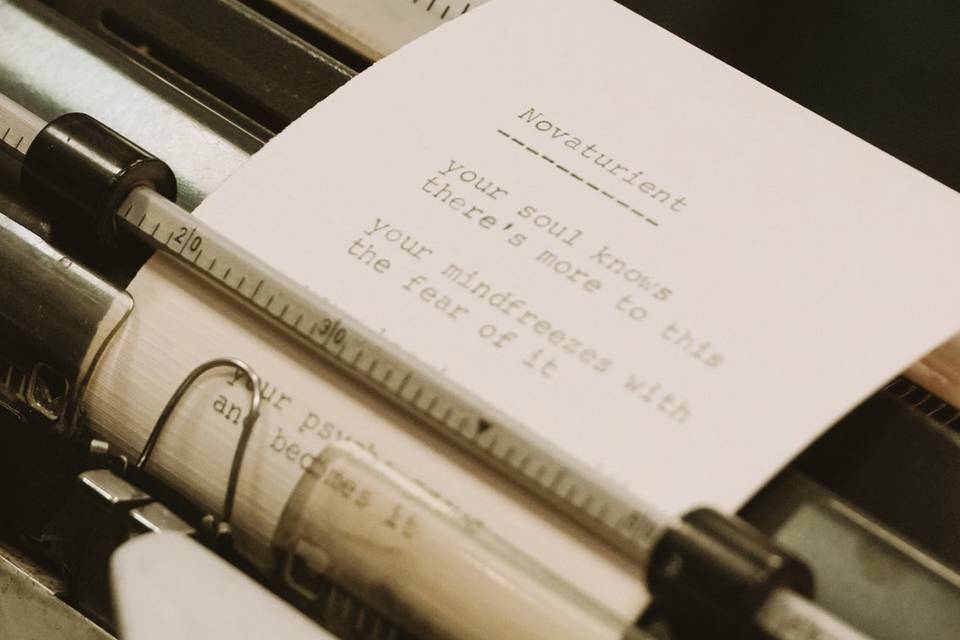 Novaturient
----------
your soul knows
there's more to this
your mindfreezes with
the fear of it
20
30
your
and becomes it